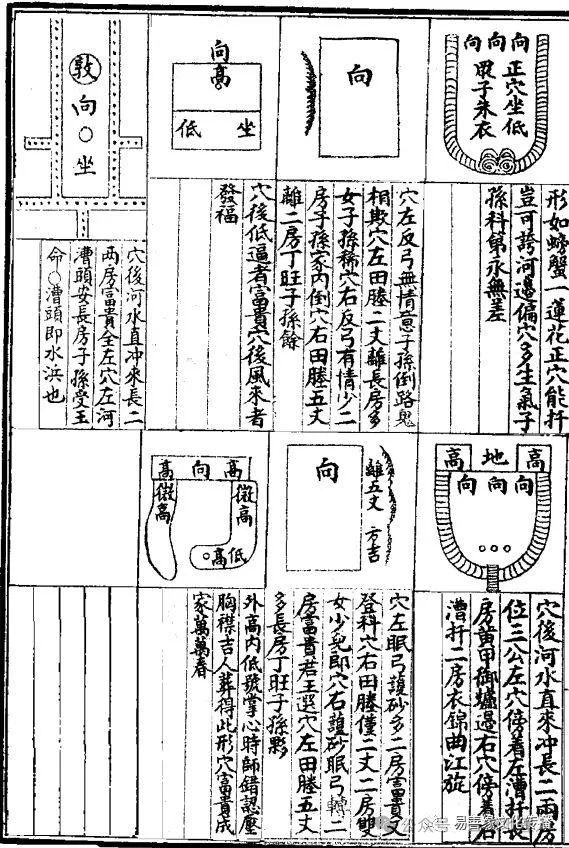 向向向
正穴坐低
甲子朱衣
形如螃蟹一蓮花正穴能扦
豈可誇河邊偏穴多生氣子
孫科第永無差
向
穴左反弓無情意子孫倒路鬼
相欺穴左田塍二丈離長房多
女子孫稀穴右反弓有情少二
房子孫家內倒穴右田塍五丈
離二房丁旺子孫餘
向
高
低 坐
穴後低逼者富貴穴後風來者
發福
敦
向
坐
穴後河水直冲來長二
兩房富貴全左穴左河
漕頭安長房子孫受玉
命〇漕頭即水浜也
高 地 高
向向向
穴後河水直來冲長二兩房
位三公左穴傍着左漕扦長
房黃甲御爐過右穴傍着右
漕扦二房衣錦曲江旋
向
離五丈 方吉
穴左眠弓護砂多二房富貴又
登科穴右田塍僅二丈二房雙
女少兒郎穴右護砂眠弓轉二
房富貴若王選穴左田塍五丈
多長房丁旺子孫夥
高 向 高
微高
微高
高低
外高內低號掌心時師錯認壓
胸襟吉人葬得此形穴富貴成
家萬萬春
公众号